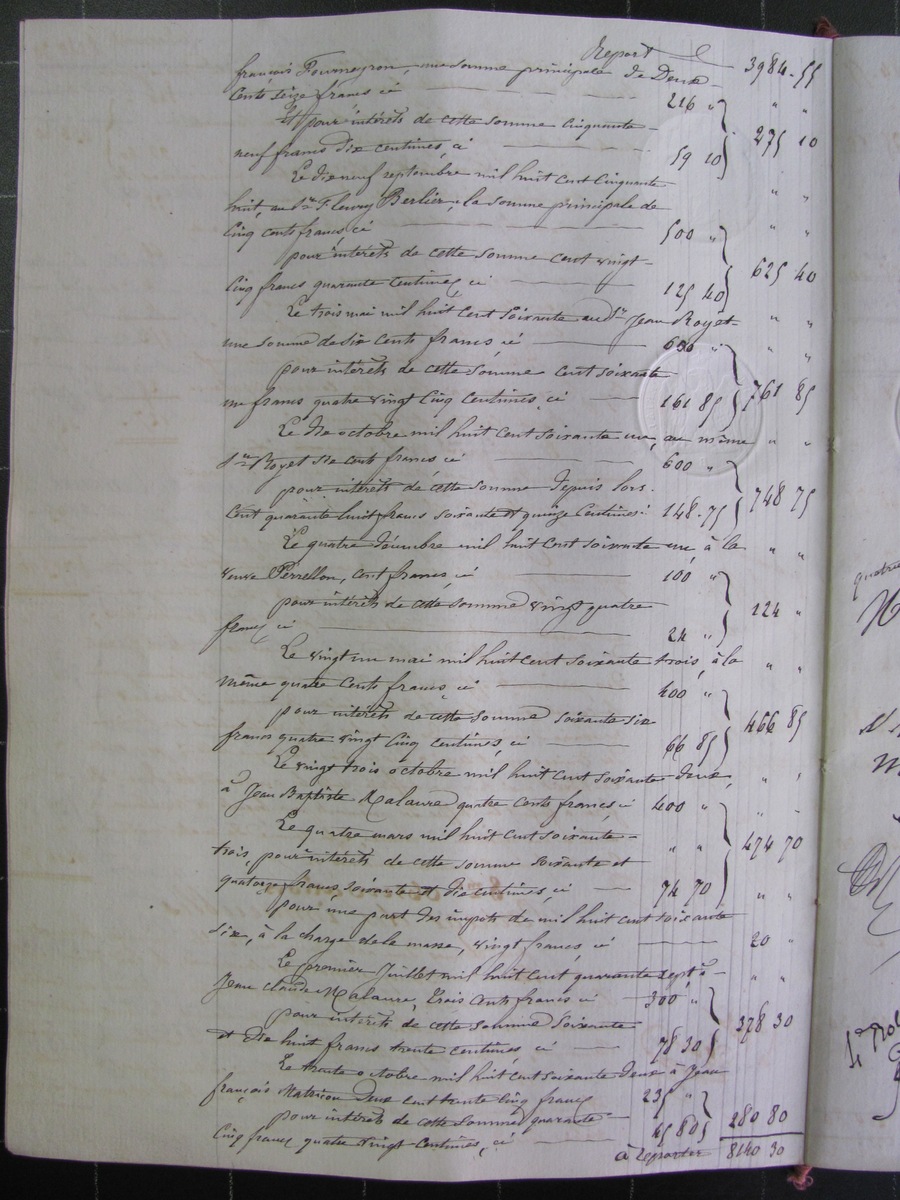 Report 3984-55
françois Fourneyron, une somme principale de Deux
cents seize francs ci 216 " " "
Et pour intérêts de cette somme Cinquante
neuf francs dix centimes, ci 59 10 275 10
Le dix neuf septembre mil huit cent cinquante
huit, au Sr. Fleury Berlier, la somme principale de " "
Cinq cents francs, ci 500 " " "
pour intérêts de cette somme cent vingt
Cinq francs quarante Centimes ci 125 40 625 40
Le trois mai mil huit cent soixante au Sr. Jean Royet " "
une somme de six cents francs ci 600 " " "
pour intérêts de cette somme cent soixante
un francs quatre vingt Cinq Centimes, ci 161 85 761 85
Le dix octobre mil huit cent soixante un, au même " "
Sr. Royet six cents francs ci 600 "
pour intérêts de cette somme depuis lors.
Cent quarante huit francs soixante et quinze Centimes: 148-75 748 75
Le quatre décembre mil huit cent soixante un, à la " "
veuve Perrellon, cent francs, ci 100 "
pour intérêts de cette somme vingt quatre 124 "
francs ci 24 "
Le vingt un mai mil huit cent soixante trois, à la " "
même quatre cents francs, ci 400 "
pour intérêts de cette somme soixante six 466 85
francs quatre vingt Cinq Centimes, ci 66 85
Le vingt trois octobre mil huit cent soixante deux, " "
à Jean Baptiste Malaure quatre cents francs ci 400 " " -
Le quatre mars mil huit cent soixante-
trois, pour intérêts de cette somme soixante et " " 474 70
quatorze francs, soixante et dix centimes, ci 74 70 " "
pour une part des impots de mil huit cent soixante
six, à la charge de la masse, vingt francs, ci 20 "
Le premier Juillet mil huit cent quarante sept à " "
Jean Claude Malaure, trois cents francs ci 300 "
pour intérêts de cette somme soixante 378 30
et dix huit francs trente centimes, ci 78 30
Le trente octobre mil huit cent soixante deux à Jean
françois Mathieu Deux cent trente Cinq francs 235 "
pour intérêts de cette somme quarante 280 80
Cinq francs quatre vingt Centimes, ci 45 80
à reporter 8140 30